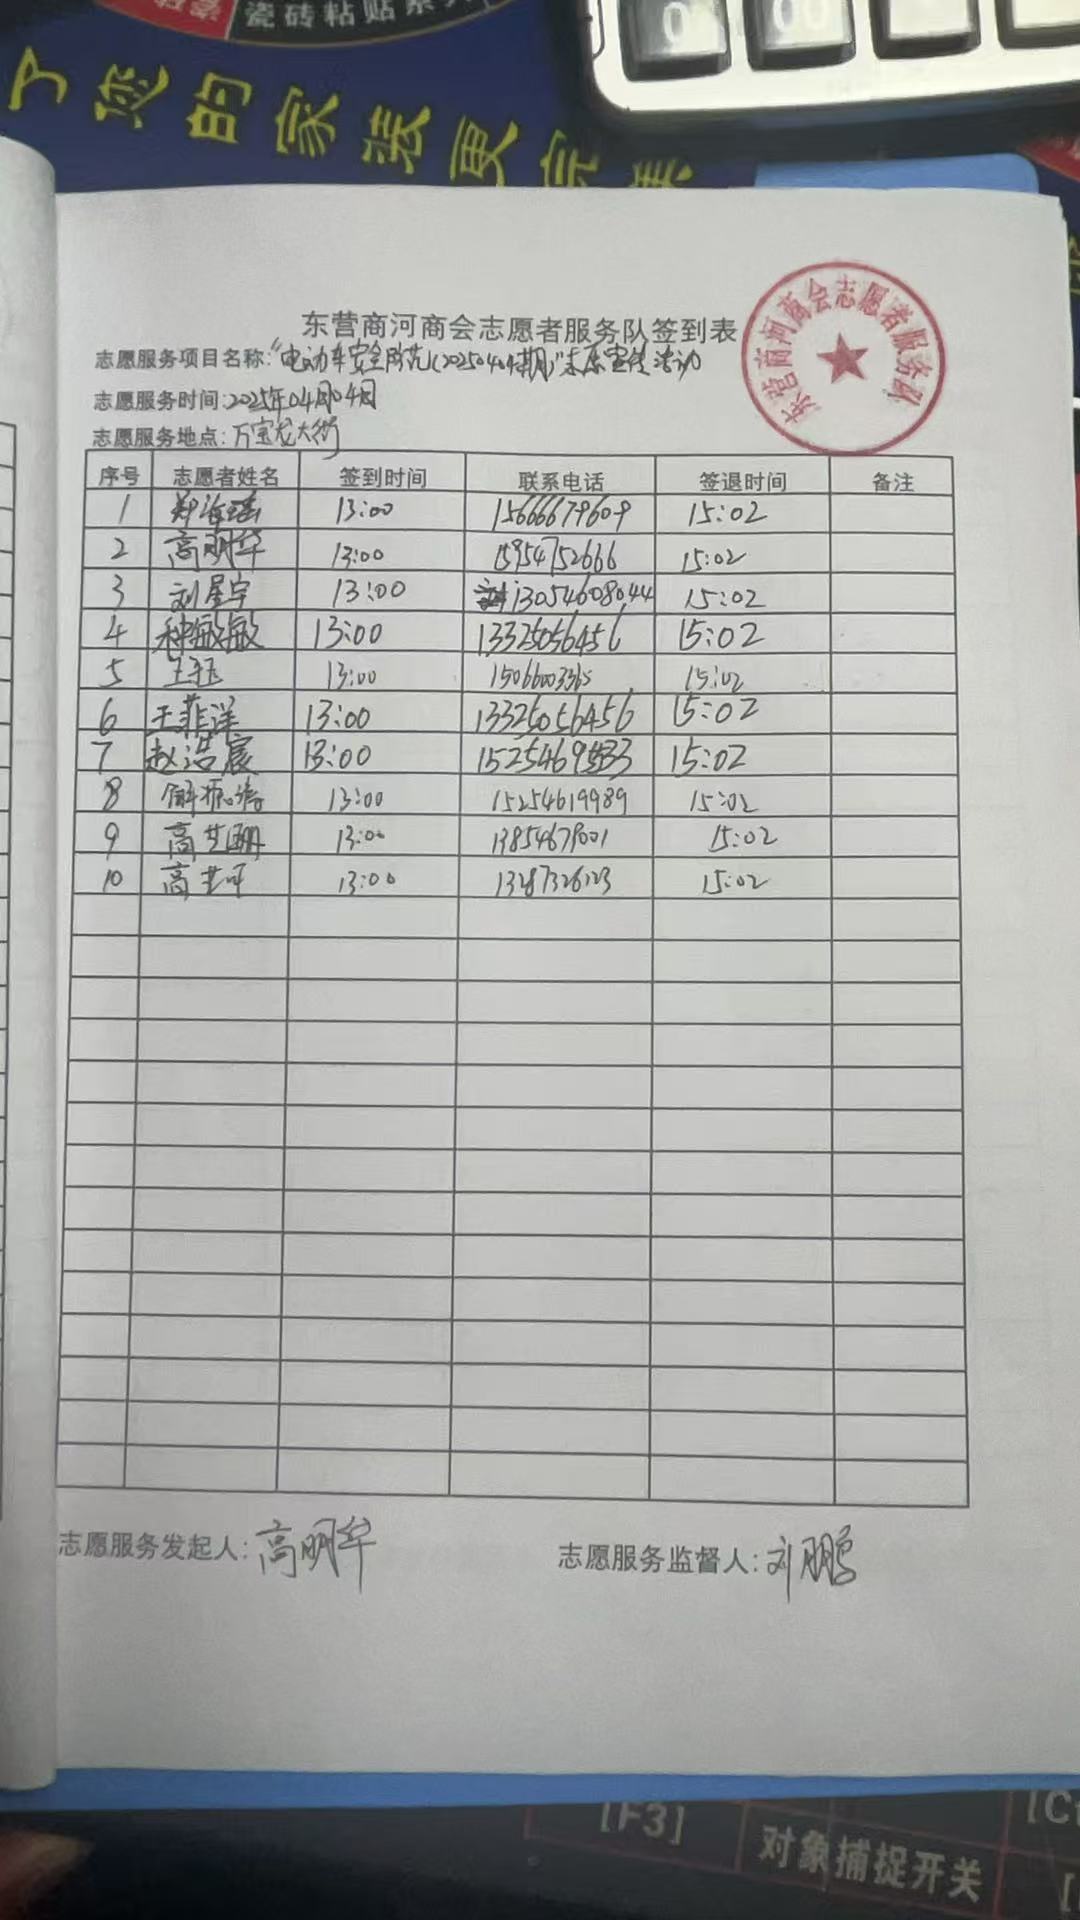 瓷砖粘贴系
了您的家装更完美
0 00
东营商河商会志愿者服务队签到表
东营商河商会志愿者服务队
志愿服务项目名称:"电动车安全防范(20250404期)"志愿宣传活动
志愿服务时间:2025年04月04日
志愿服务地点:万宝龙大街
序号 志愿者姓名 签到时间 联系电话 签退时间 备注
1 郑海瑶 13:00 15666679609 15:02
2 高明华 13:00 15954752666 15:02
3 刘星宇 13:00 13054608044 15:02
4 种敏敏 13:00 13325056456 15:02
5 王钰 13:00 15066003365 15:02
6 王菲洋 13:00 13325056456 15:02
7 赵浩宸 13:00 15:02
8 13:00 15254619989 15:02
9 高艺珊 13:00 15:02
10 高艺可 13:00 13287326123 15:02
志愿服务发起人:高明华
志愿服务监督人:刘鹏
[F3]
对象捕捉开关